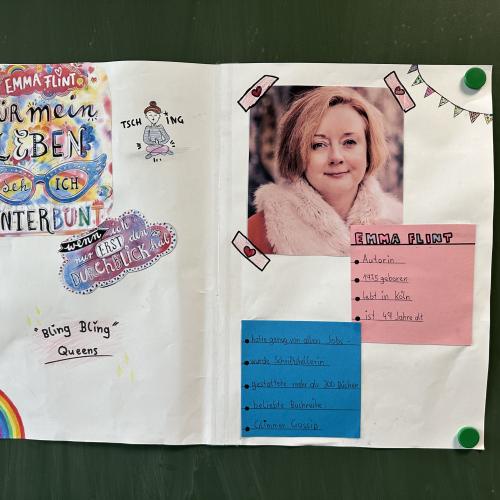 EMMA FLINT
FÜR MEIN
LEBEN
seh ICH
UNTERBUNT
wenn ich
nur ERST den
DURCHBLICK hab
TSCHING
"Bling Bling"
Queens
EMMA FLINT
Autorin
1975 geboren
lebt in Köln
ist 49 Jahre alt
hatte genug von allen Jobs -
wurde Schriftstellerin
gestaltete mehr als 300 Bücher
beliebte Buchreihe:
Glimmer Gossip